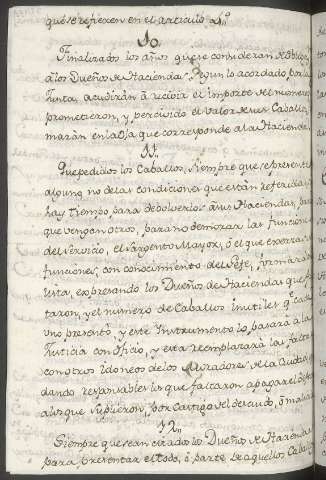 que se refieren en el articulo 4º
10
Finalizados los años que se consideran de obligac
â los Dueños de Haciendas, segun lo acordado, por la
Junta, acudirán à recivir el importe del numero q
prometieron, y percivido el valor de sus Caballos
marán en la oja que corresponde a la Hacienda
11
Que pedidos los Caballos, siempre que se presente
alguno no de las condiciones que están referidas
hay tiempo para debolverlos âsus Haciendas, para
que vengan otros, para no demorar las funciones
del servicio, el Sargento Mayor, ô el que exerza
funciones, con conocimiento del Gefe, formará
lista, expresando los Dueños de Haciendas que fal
taron, y el numero de Caballos inutiles q.e cada
uno presentó, y este Instrumento lo pasará à la
Justicia con Oficio, y esta reemplazará las faltas
con otros idoneos de los Moradores de la Ciudad
dando responsables los que faltaron a pagar el
a los que suplieron, por castigo del descuido, ô mala
12
Siempre que sean citados los Dueños de Haciendas
para presentar el todo, ô parte de aquellos Caballos